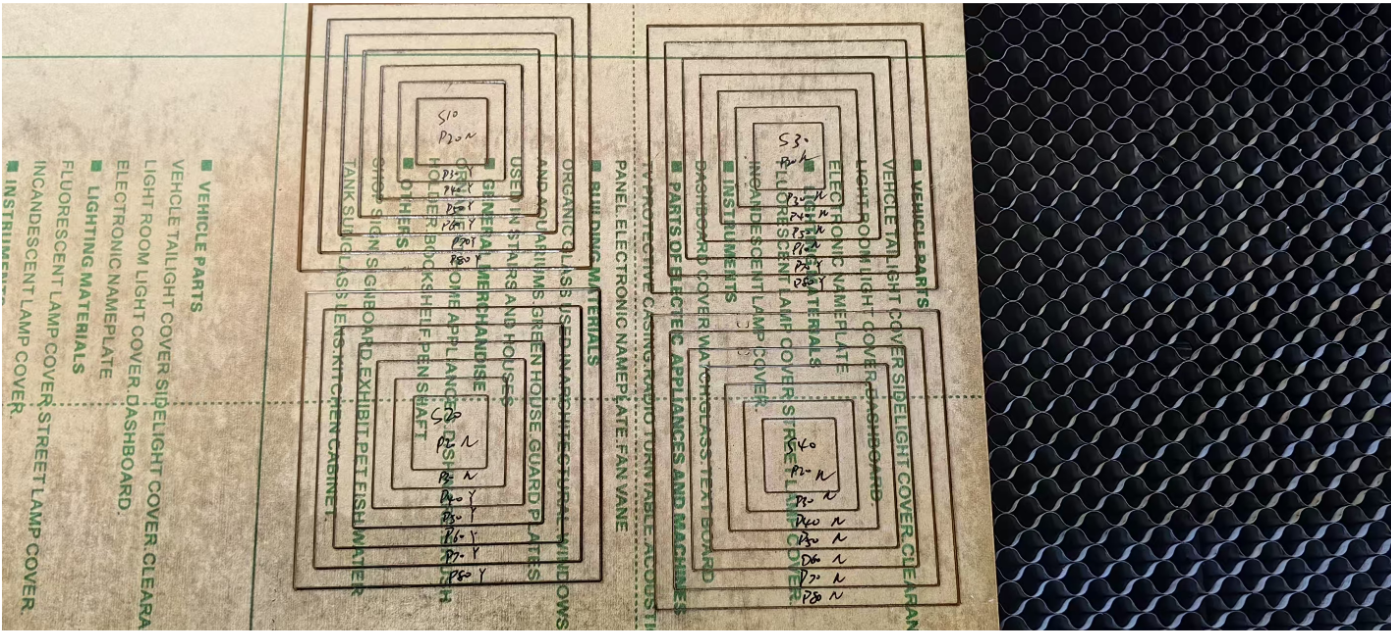 S10
P20 N
P30 Y
P40 Y
P50 Y
P60 Y
P70 Y
P80 Y
S30
P20 N
P30 N
P40 N
P50 N
P60 N
P70 Y
P80 Y
S20
P20 N
P30 N
P40 Y
P50 Y
P60 Y
P70 Y
P80 Y
S40
P20 N
P30 N
P40 N
P50 N
P60 N
P70 N
P80 N
■ VEHICLE PARTS
VEHICLE TAILIGHT COVER SIDELIGHT COVER, CLEARAN
LIGHT ROOM LIGHT COVER, DASHBOARD.
ELECTRONIC NAMEPLATE
■ LIGHTING MATERIALS
FLUORESCENT LAMP COVER, STREET LAMP COVER.
INCANDESCENT LAMP COVER.
■ INSTRUMENTS
DASHBOARD COVER WATCH GLASS, TEXT BOARD
■ PARTS OF ELECTEC APPLIANCES AND MACHINES
TV PROTECTIVE CASING, RADIO TURNTABLE, ACOUSTI
PANEL, ELECTRONIC NAMEPLATE FAN VANE
■ BUILDING MATERIALS
ORGANIC GLASS USED IN ARCHITECTURAL WINDOWS
AND AQUARIUMS. GREEN HOUSE, GUARD PLATES
USED IN STAIRS AND HOUSES
■ GENERAL MERCHANDISE
HOME APPLIANCE,
HOLDER BOOKSHEIF, PEN SHAFT
■ OTHERS
SHOP SIGN SIGNBOARD, EXHIBIT, PET FISH WATER
TANK SUNGLASS LENS, KITCHEN CABINET.
■ VEHICLE PARTS
VEHICLE TAILIGHT COVER SIDELIGHT COVER, CLEARA
LIGHT ROOM LIGHT COVER, DASHBOARD.
ELECTRONIC NAMEPLATE
■ LIGHTING MATERIALS
FLUORESCENT LAMP COVER, STREET LAMP COVER.
INCANDESCENT LAMP COVER.
■ INSTRUMENTS